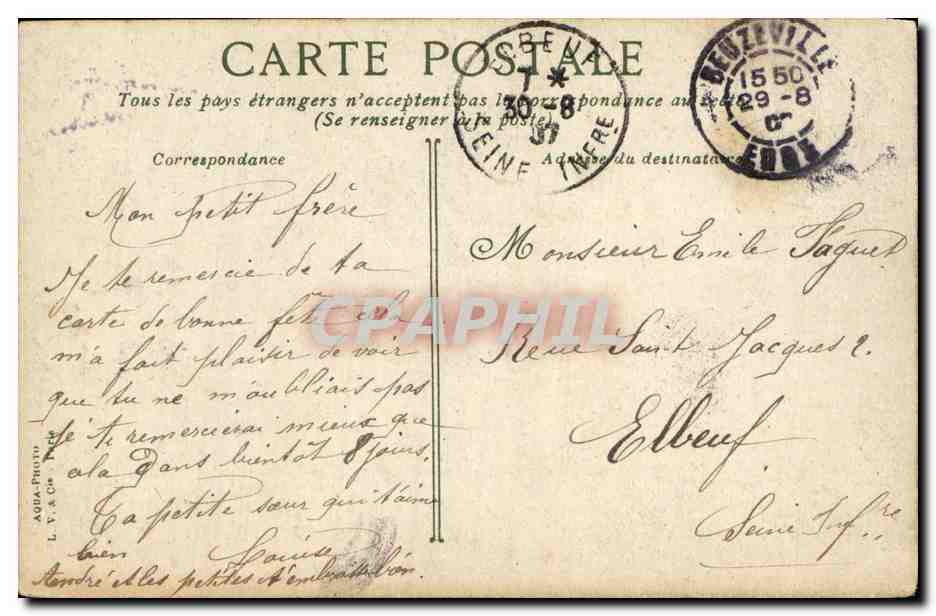 CARTE POSTALE
Tous les pays étrangers n'acceptent pas la correspondance au recto
(Se renseigner à la poste)
Correspondance
Adresse du destinataire
ELBEUF
7 *
30 -8
07
SEINE INFRE
BEUZEVILLE
15 50
29 -8
EURE
Mon petit frère
Je te remercie de ta
carte de bonne fête cela
m'a fait plaisir de voir
que tu ne m'oubliais pas
je te remercierai mieux que
cela dans bientôt 8 jours.
Ta petite sœur qui t'aime
bien Louise
André et les petites t'embrasse bien.
Monsieur Emile Faguet
Rue Saint Jacques 2.
Elbeuf.
Seine Inf.re
CPAPHIL
AQUA-PHOTO
L. V. & Cie - Paris